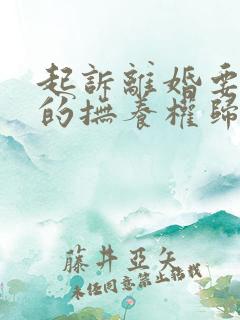 起訴離婚要
的撫養權歸
藤井亞矢
未经同意禁止转载